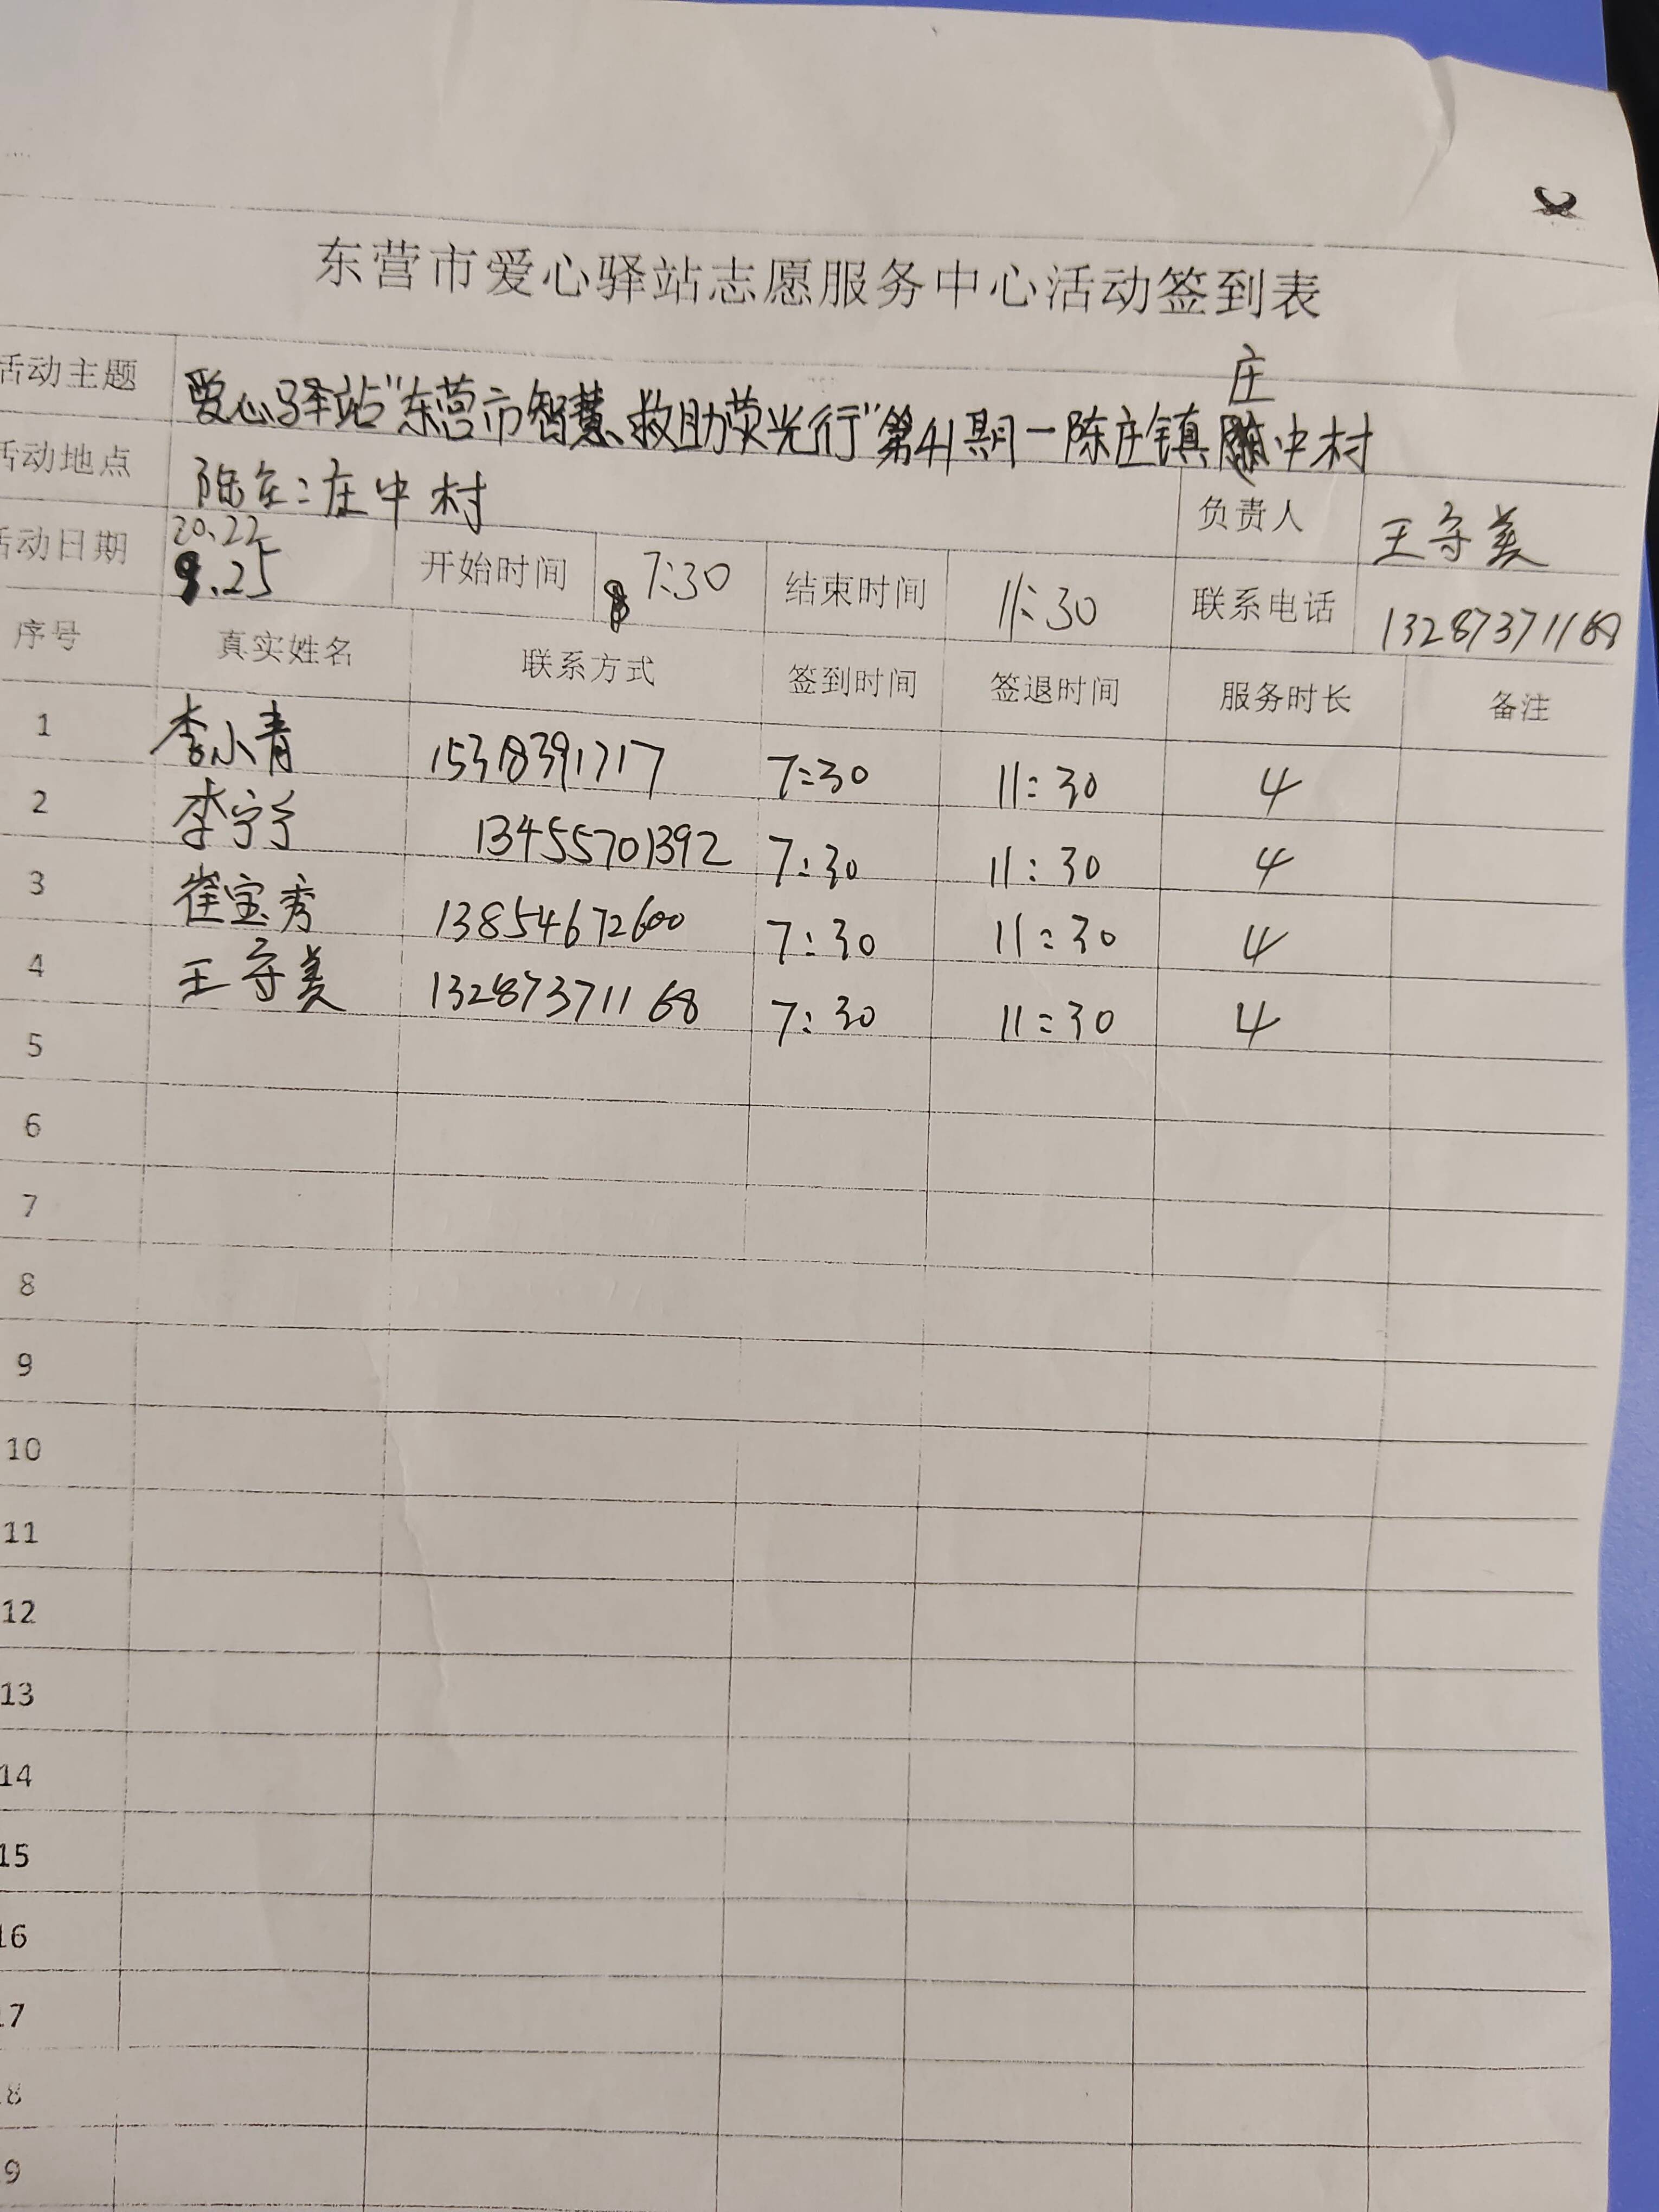 东营市爱心驿站志愿服务中心活动签到表
庄
活动主题 爱心驿站"东营市智慧救助荧光行"第41期一陈庄镇中村
活动地点 陈庄:庄中村 负责人 王守美
20.22
活动日期 9.25 开始时间 7:30 结束时间 11:30 联系电话 13287371168
序号 真实姓名 联系方式 签到时间 签退时间 服务时长 备注
1 李小青 15318391717 7:30 11:30 4
2 李宁宁 13455701392 7:30 11:30 4
3 崔宝秀 13854672600 7:30 11:30 4
4 王守美 13287371168 7:30 11:30 4
5
6
7
8
9
10
11
12
13
14
15
16
17
18
19